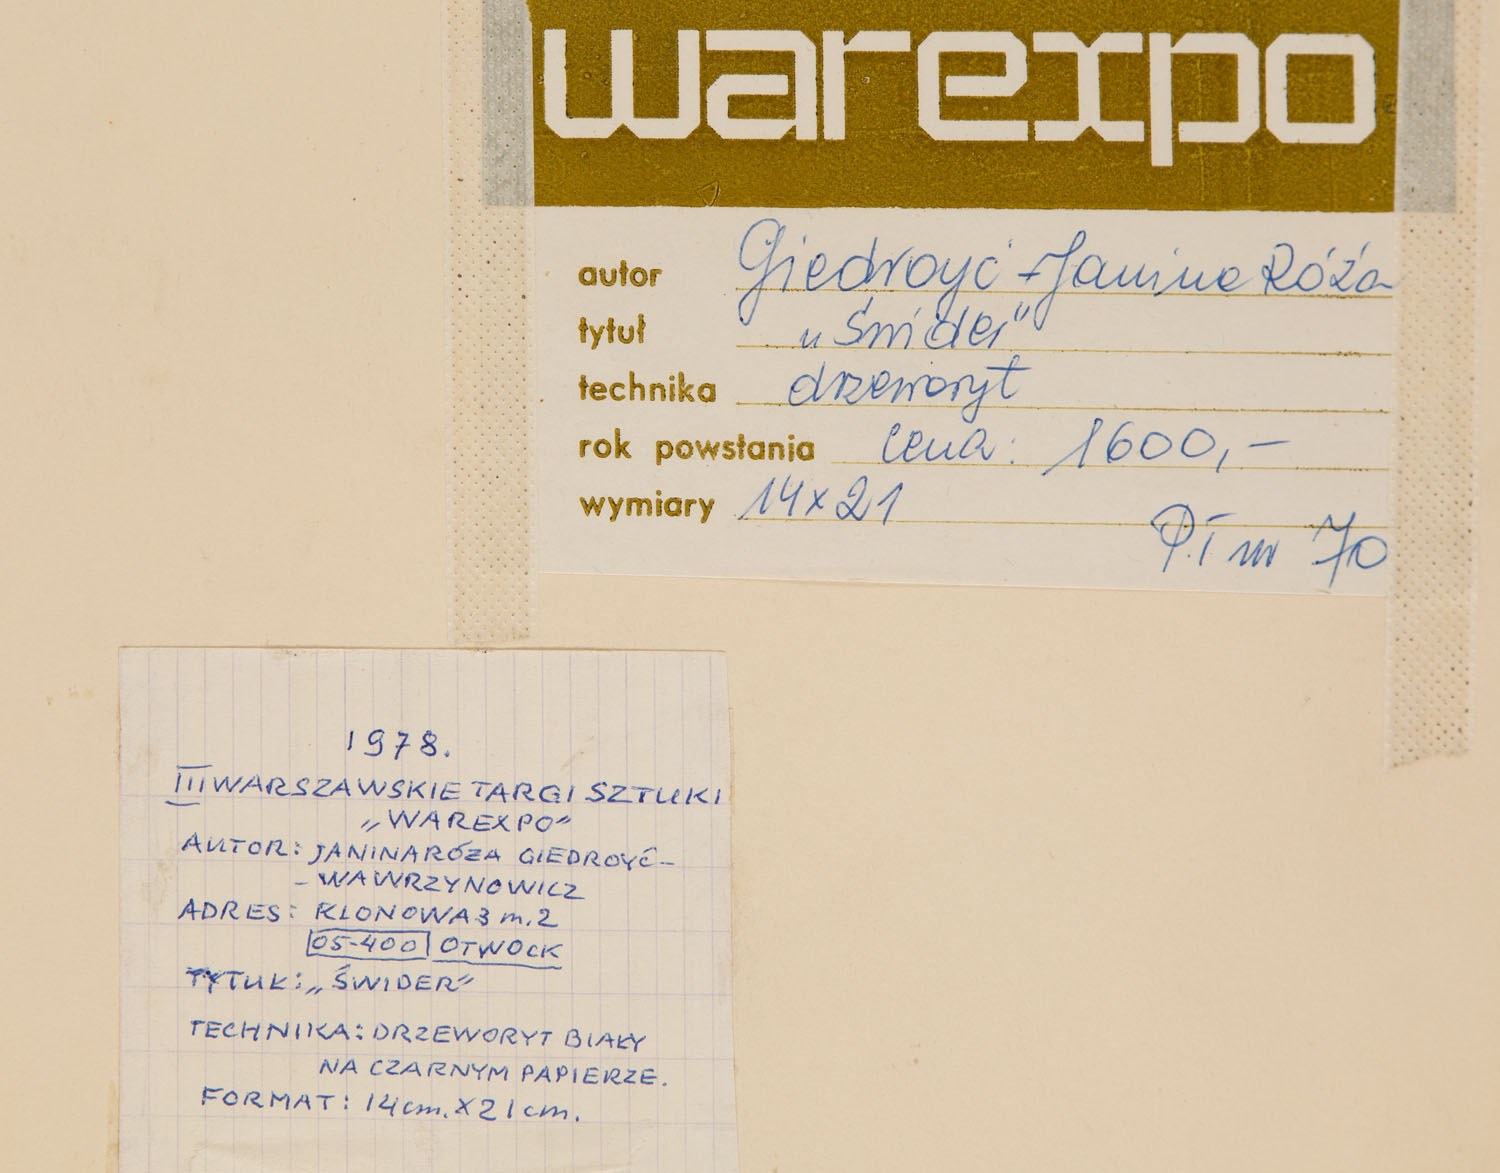 warexpo
autor Giedroyć - Janina Róża
tytuł „Świder"
technika drzeworyt
rok powstania cena: 1600,-
wymiary 14x21
70
1978.
III WARSZAWSKIE TARGI SZTUKI
„WAREXPO"
AUTOR: JANINA RÓŻA GIEDROYĆ-
- WAWRZYNOWICZ
ADRES: KLONOWA 3 m. 2
05-400 OTWOCK
TYTUŁ: „ŚWIDER"
TECHNIKA: DRZEWORYT BIAŁY
NA CZARNYM PAPIERZE.
FORMAT: 14cm. X 21cm.